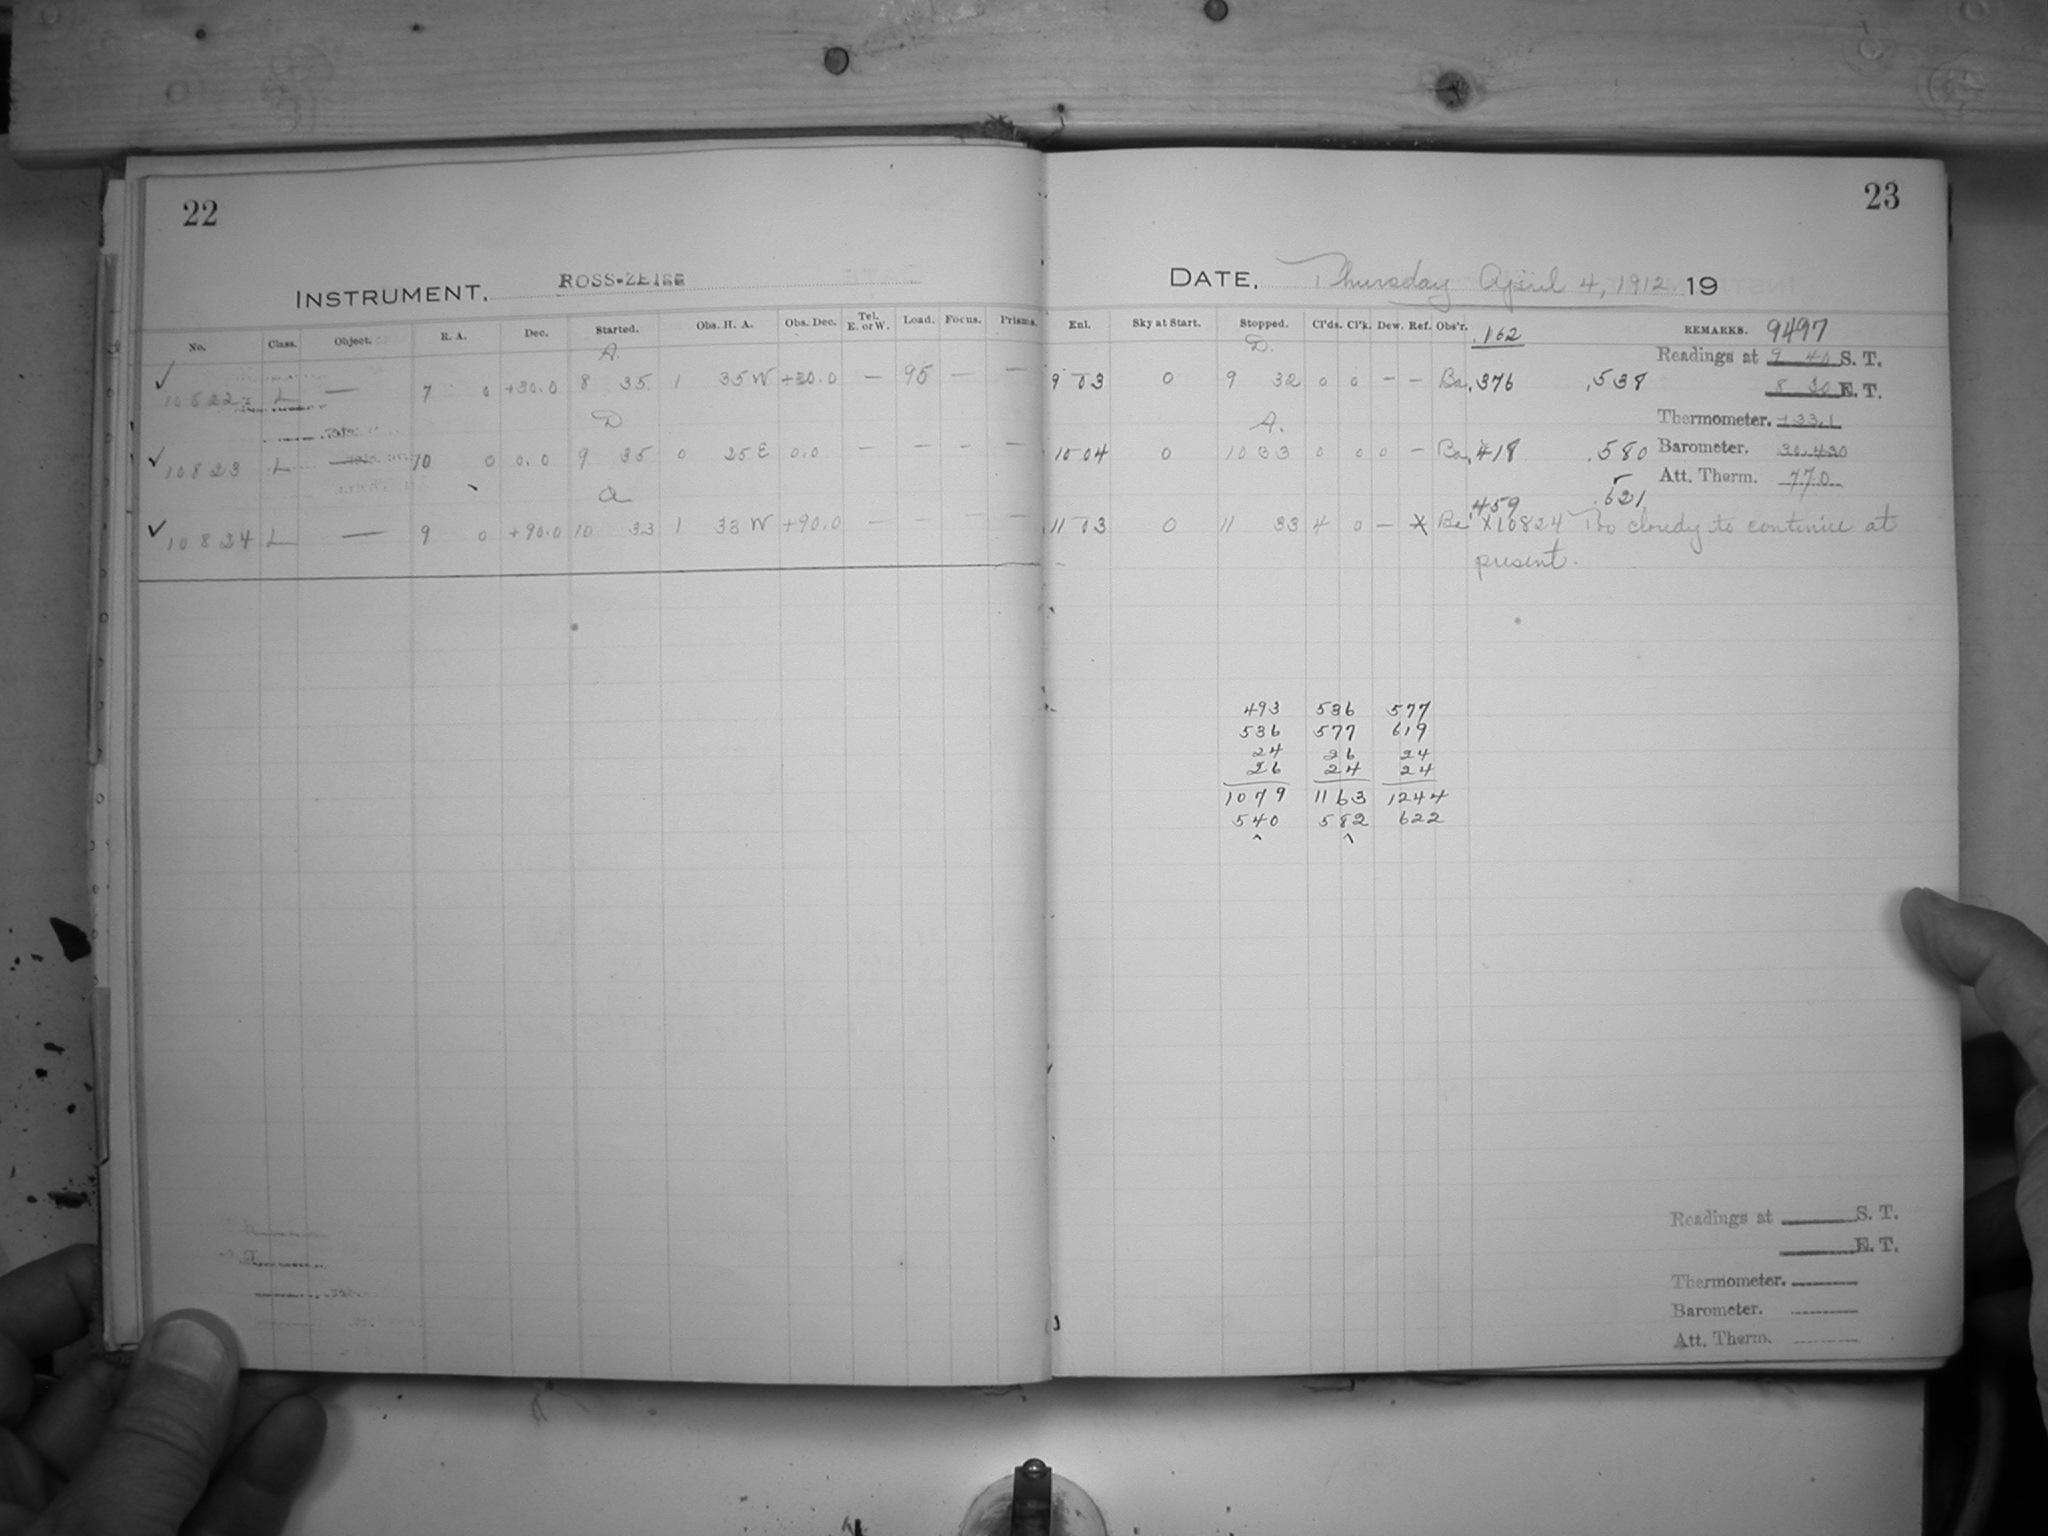 22
INSTRUMENT. ROSS-ZEISS
No. Class. Object. R. A. Dec. Started. Obs. H. A. Obs. Dec. Tel. E. or W. Load. Focus. Prisms.
A.
✓ 10822 L — 7 0 +30.0 8 35 1 35 W +30.0 — 95 — —
D
✓ 10823 L — 10 0 0.0 9 35 0 25 E 0.0 — — — —
a
✓ 10824 L — 9 0 +90.0 10 33 1 33 W +90.0 — — — —
23
DATE, Thursday April 4, 1912 19
Enl. Sky at Start. Stopped. Cl'ds. Cl'k. Dew. Ref. Obs'r. .162 REMARKS. 9497
Readings at 9 40 S. T.
D.
9 03 0 9 32 0 0 – – Ba .376 .538 8 30 E. T.
A. Thermometer. +33.1
10 04 0 10 33 0 0 0 – Ba .418 .580 Barometer. 30.430
Att. Therm. 77.0
.459 .621
11 03 0 11 33 4 0 – X Ba X10824 Too cloudy to continue at
present.
493 536 577
536 577 619
24 26 24
26 24 24
1079 1163 1244
540 582 622
^ ^
Readings at S. T.
E. T.
Thermometer.
Barometer.
Att. Therm.